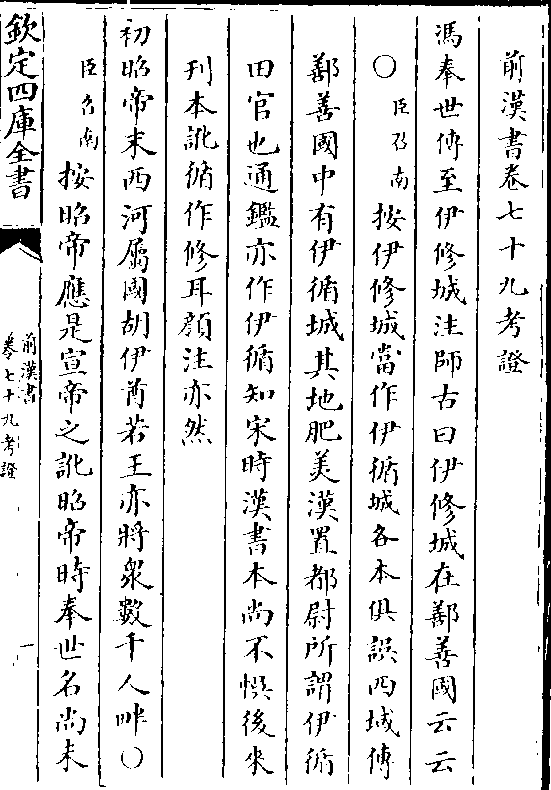 前漢書卷七十九考證
馮奉世傳至伊修城注師古曰伊修城在鄯善國云云
○臣召南按伊修城當作伊循城各本俱誤西域傳
鄯善國中有伊循城其地肥美漢置都尉所謂伊循
田官也通鑑亦作伊循知宋時漢書本尚不悞後來
刋本訛循作修耳顔注亦然
初昭帝末西河屬國胡伊酋若王亦將衆數千人畔○
臣召南按昭帝應是宣帝之訛昭帝時奉世名尚未
欽定四庫全書
前漢書
卷七十九考證
一